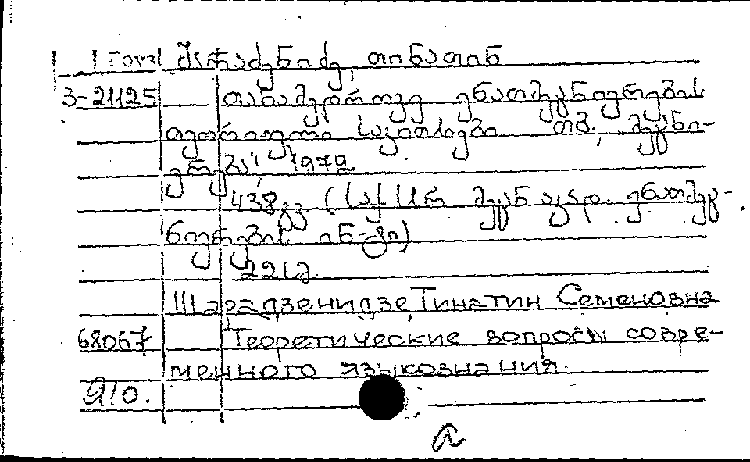 შარაძენიძე, თინათინ
3-21125 თანამედროვე ენათმეცნიერების
თეორიული საკითხები. თბ., მეცნი-
ერება, 1972
438გვ (საქ. სსრ მეცნ. აკად. ენათმეც-
ნიერების ინ-ტი)
Шарадзенидзе Тинатин Семеновна
68067 Теоретические вопросы совре-
менного языкознания.
910.